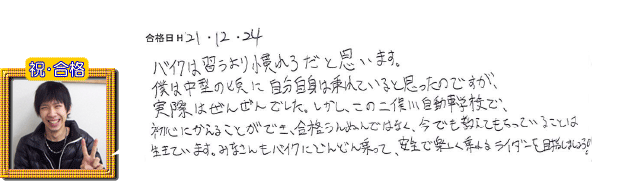 祝・合格
合格日H21・12・24
バイクは習うより慣れろだと思います。
僕は中型の頃に自分自身は乗れていると思ったのですが、
実際はぜんぜんでした。しかし、この二俣川自動車学校で、
初心にかえることができ、合格うんぬんではなく、今でも教えてもらっていることは
生きています。みなさんもバイクにどんどん乗って、安全で楽しく乗れるライダーを目指しましょう!